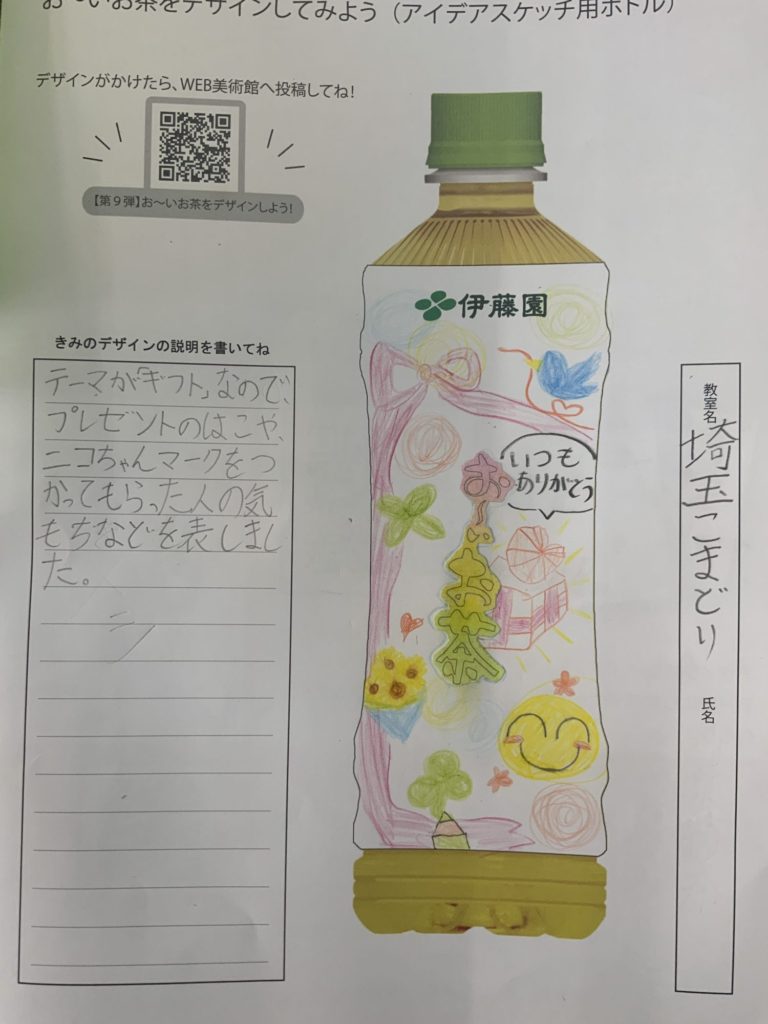 お～いお茶をデザインしてみよう（アイデアスケッチ用ボトル）
デザインがかけたら、WEB美術館へ投稿してね！
【第９弾】お～いお茶をデザインしよう！
きみのデザインの説明を書いてね
テーマが「ギフト」なので、
プレゼントのはこや、
ニコちゃんマークをつ
かってもらった人の気
もちなどを表しまし
た。
伊藤園
いつも
ありがとう
お～いお茶
教室名
埼玉こまどり
氏名